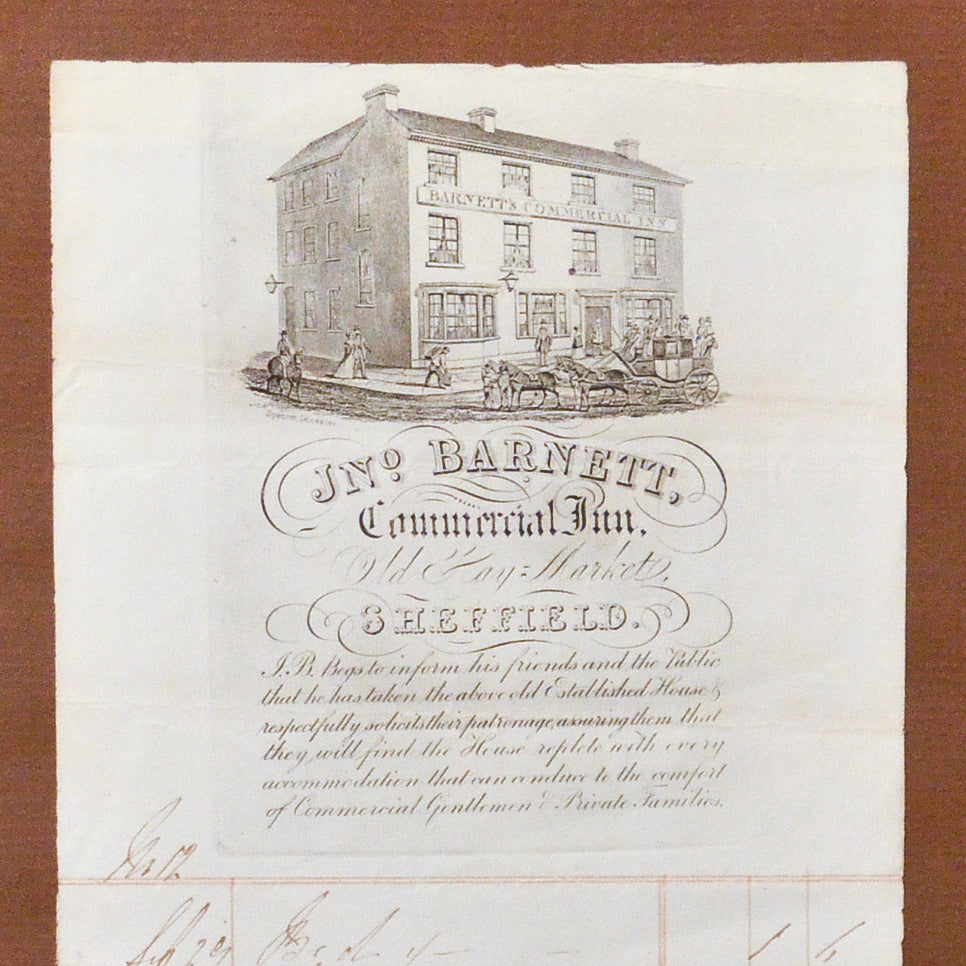 BARNETT'S COMMERCIAL INN
JNO. BARNETT,
Commercial Inn.
Old Hay=Market,
SHEFFIELD.
J.B. Begs to inform his friends and the Public
that he has taken the above old Established House &
respectfully solicits their patronage, assuring them that
they will find the House replete with every
accommodation that can conduce to the comfort
of Commercial Gentlemen & Private Families.
No 12
Sep 29 1 6